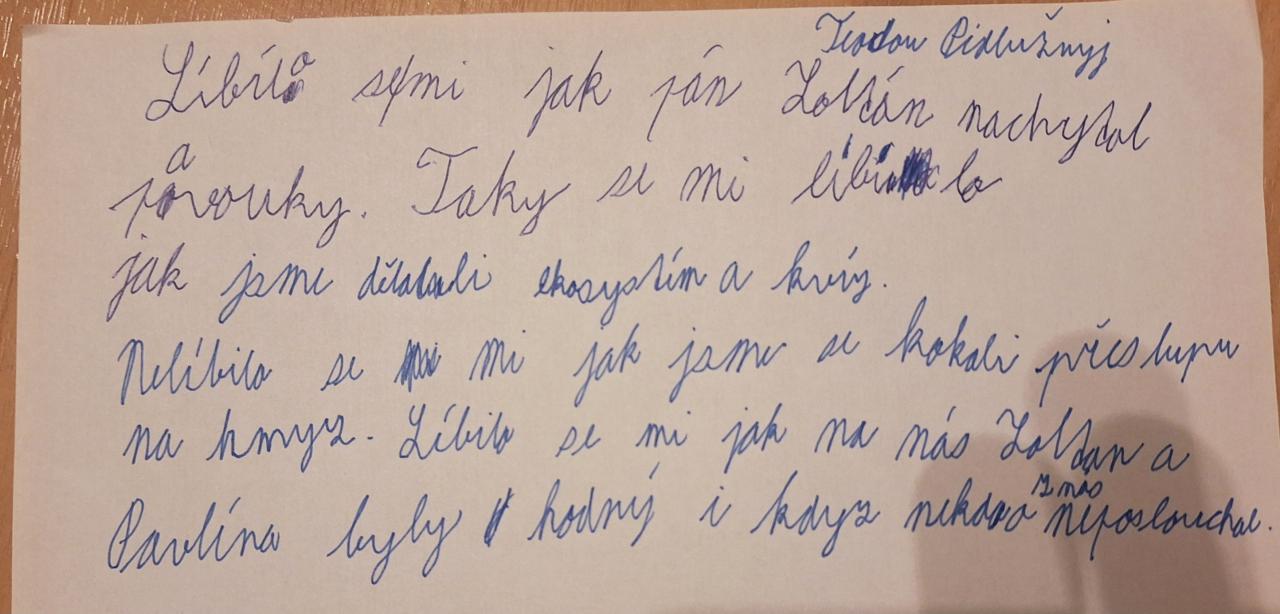 Teodor Pidlužnyj
Líbilo se mi jak pán Zoltán nachytal
pavouky. Taky se mi líbilo
jak jsme dělali ekosystím a kvíz.
Nelíbilo se mi jak jsme se kokali přes lupu
na hmyz. Líbilo se mi jak na nás Zoltan a
Pavlína byly hodný i kdyz nekdo z nás neposlouchal.